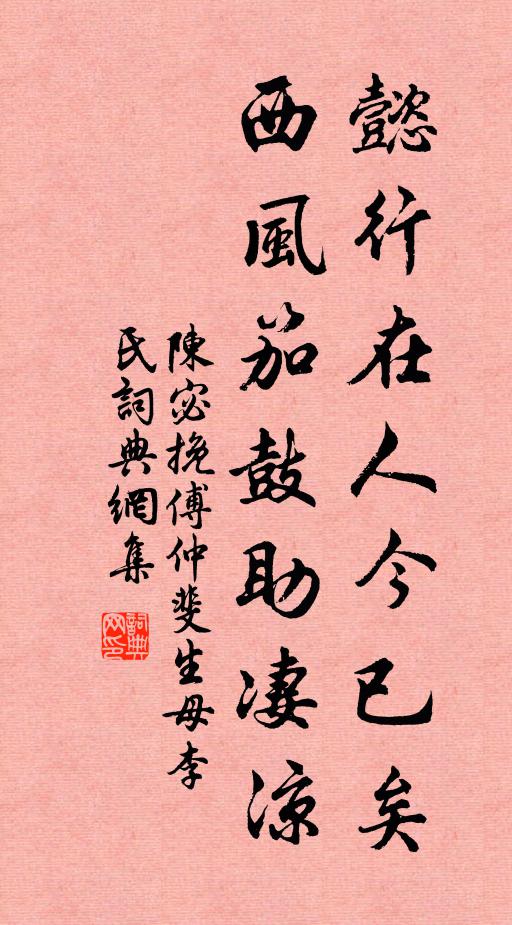 懿行在人今已矣
西風笳鼓助凄涼
陳宓挽傅仲斐生母李
氏詞典網集
詞典網印